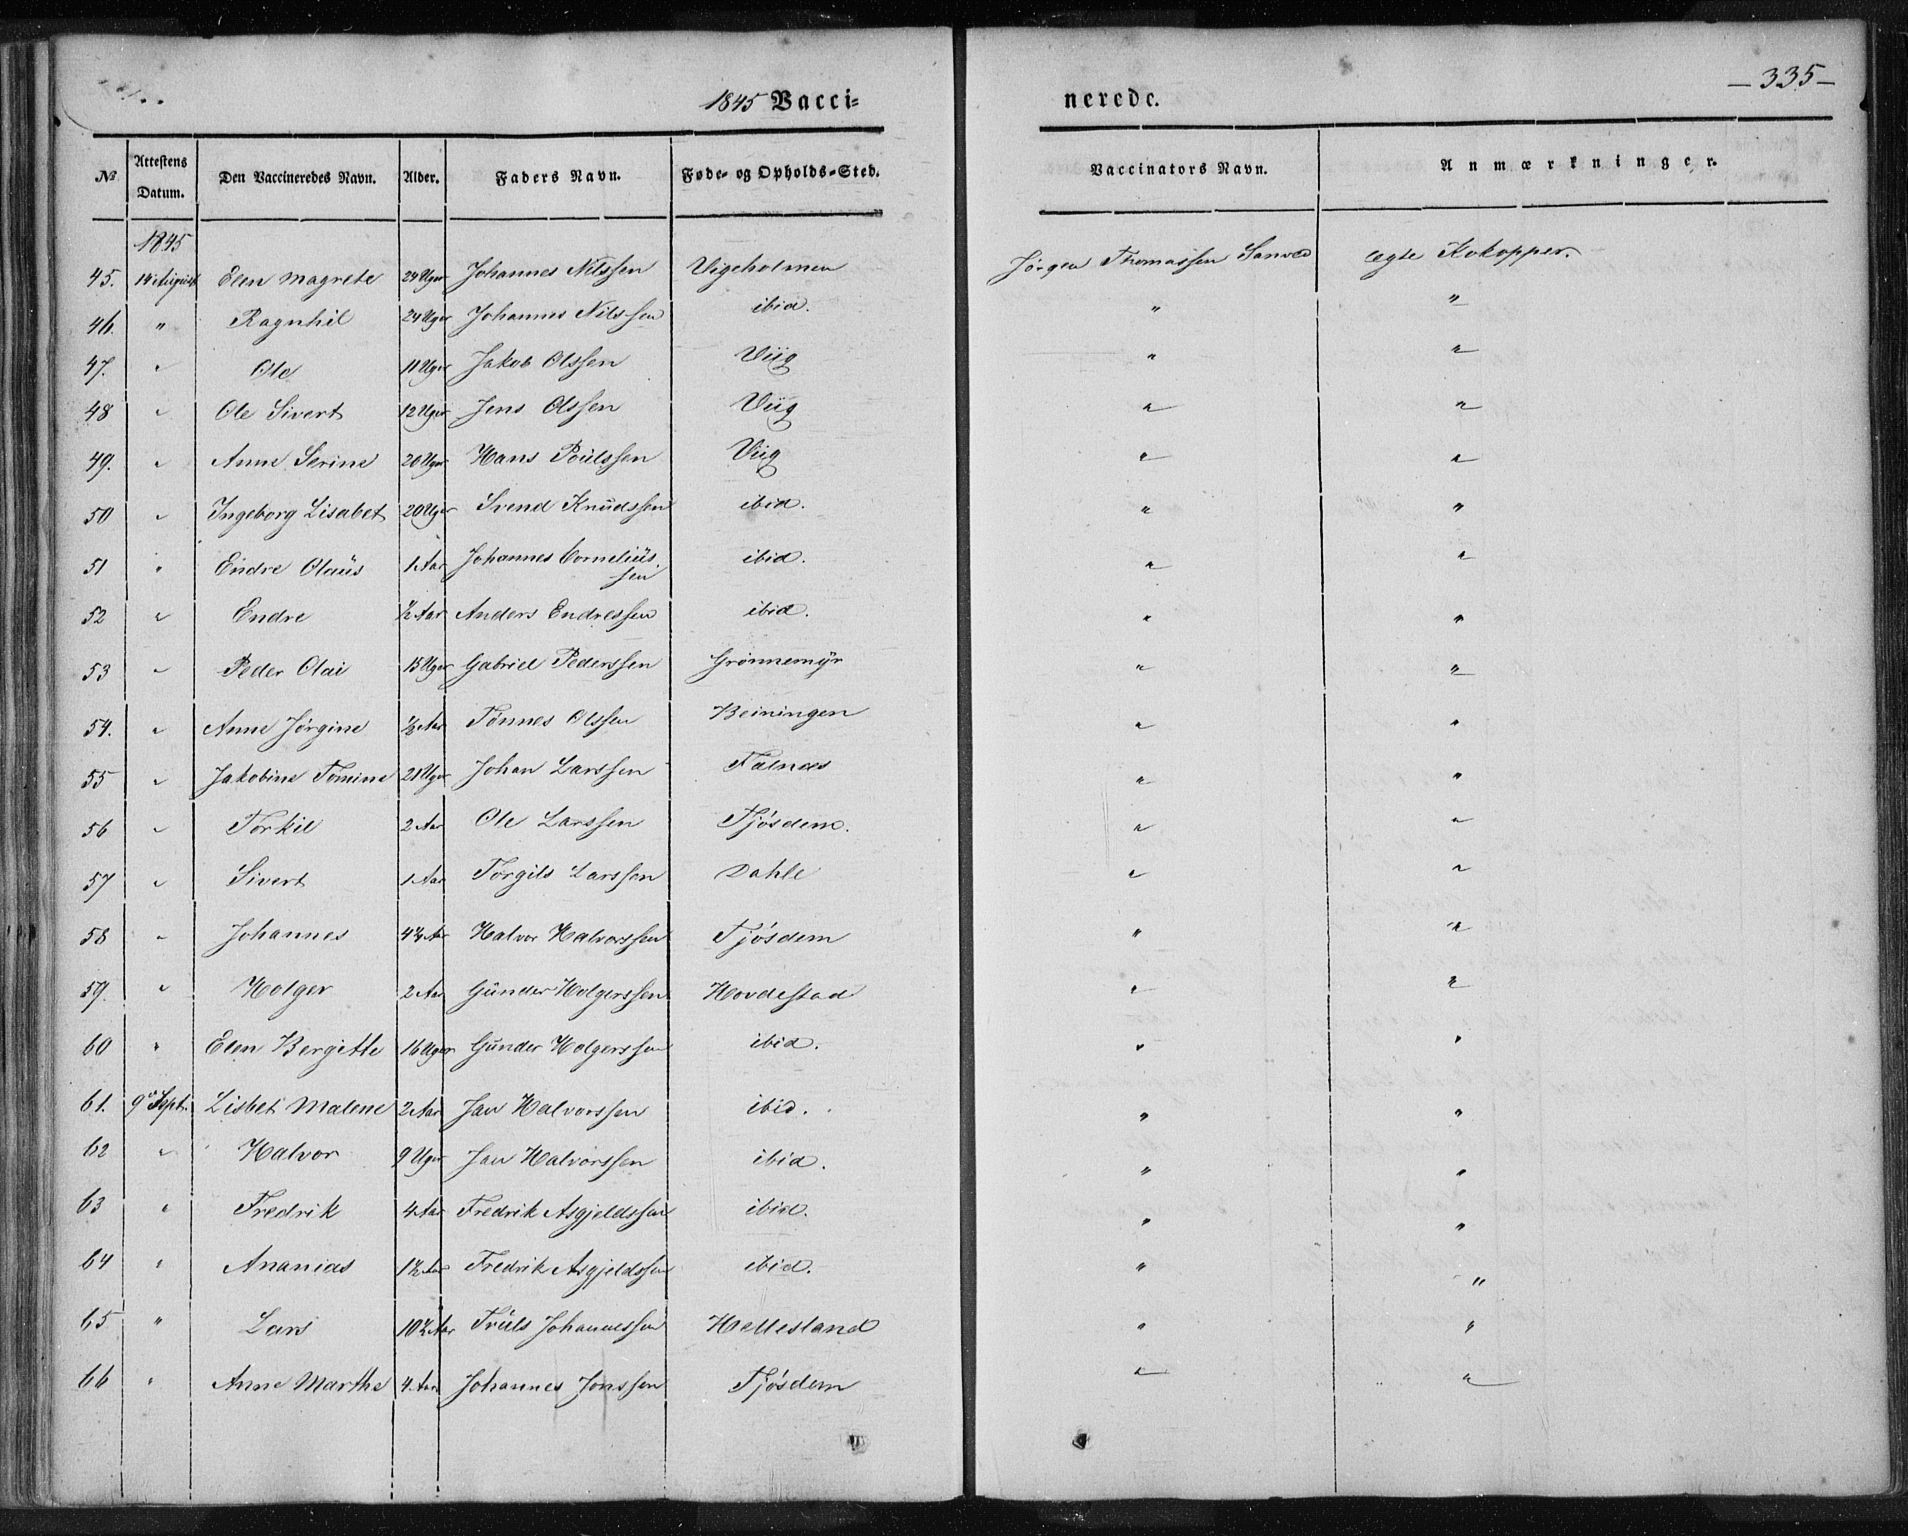 1845 Vacci= nerede. — 335 —
No Attestens Datum. Den Vaccineredes Navn. Alder. Faders Navn. Føde- og Opholds-Sted. Vaccinators Navn. Anmærkninger.
1845
45. 14 August Elen Magrete 24 Uger Johannes Nilssen Vigeholmen Jörgen Thomassen ægte Kokopper.
46. " Ragnhil 24 Uger Johannes Nilssen ibid. " "
47. " Ole 11 Uger Jakob Olssen Viig " "
48 " Ole Sivert 12 Uger Jens Olssen Viig " "
49. " Anne Serine 20 Uger Hans Poülssen Viig " "
50 " Ingeborg Lisabet 20 Uger Svend Knüdssen ibid. " "
51 " Endre Olaüs 1 Aar Johannes Corneliüs- ibid. " "
sen
52 " Endre ½ Aar Anders Endressen ibid. " "
53 " Peder Olai 15 Uger Gabriel Pederssen Grönnemÿr " "
54. " Anne Jörgine ½ Aar Tönnes Olssen Beiningen " "
55 " Jakobine Tomine 21 Uger Johan Larssen Falnæs " "
56 " Torkil 2 Aar Ole Larssen Tjösdem. " "
57 " Sivert 1 Aar Torgils Larssen Dahle " "
58 " Johannes 4½ Aar Halvor Halvorssen Tjösdem " "
59. " Holger 2 Aar Günder Holgerssen Hovdestad " "
60 " Elen Bergitte 16 Uger Günder Holgerssen ibid. " "
61. 9de Sept. Lisbet Malene 2 Aar Jan Halvorssen ibid. " "
62 " Halvor 9 Uger Jan Halvorssen ibid. " "
63 " Fredrik 4 Aar Fredrik Asgjeldssen ibid. " "
64 " Ananias 1½ Aar Fredrik Asgjeldssen ibid. " "
65 " Lars 10½ Aar Trüls Johannessen Hellesland " "
66 " Anne Marthe 4 Aar Johannes Jonssen Tjösdem " "